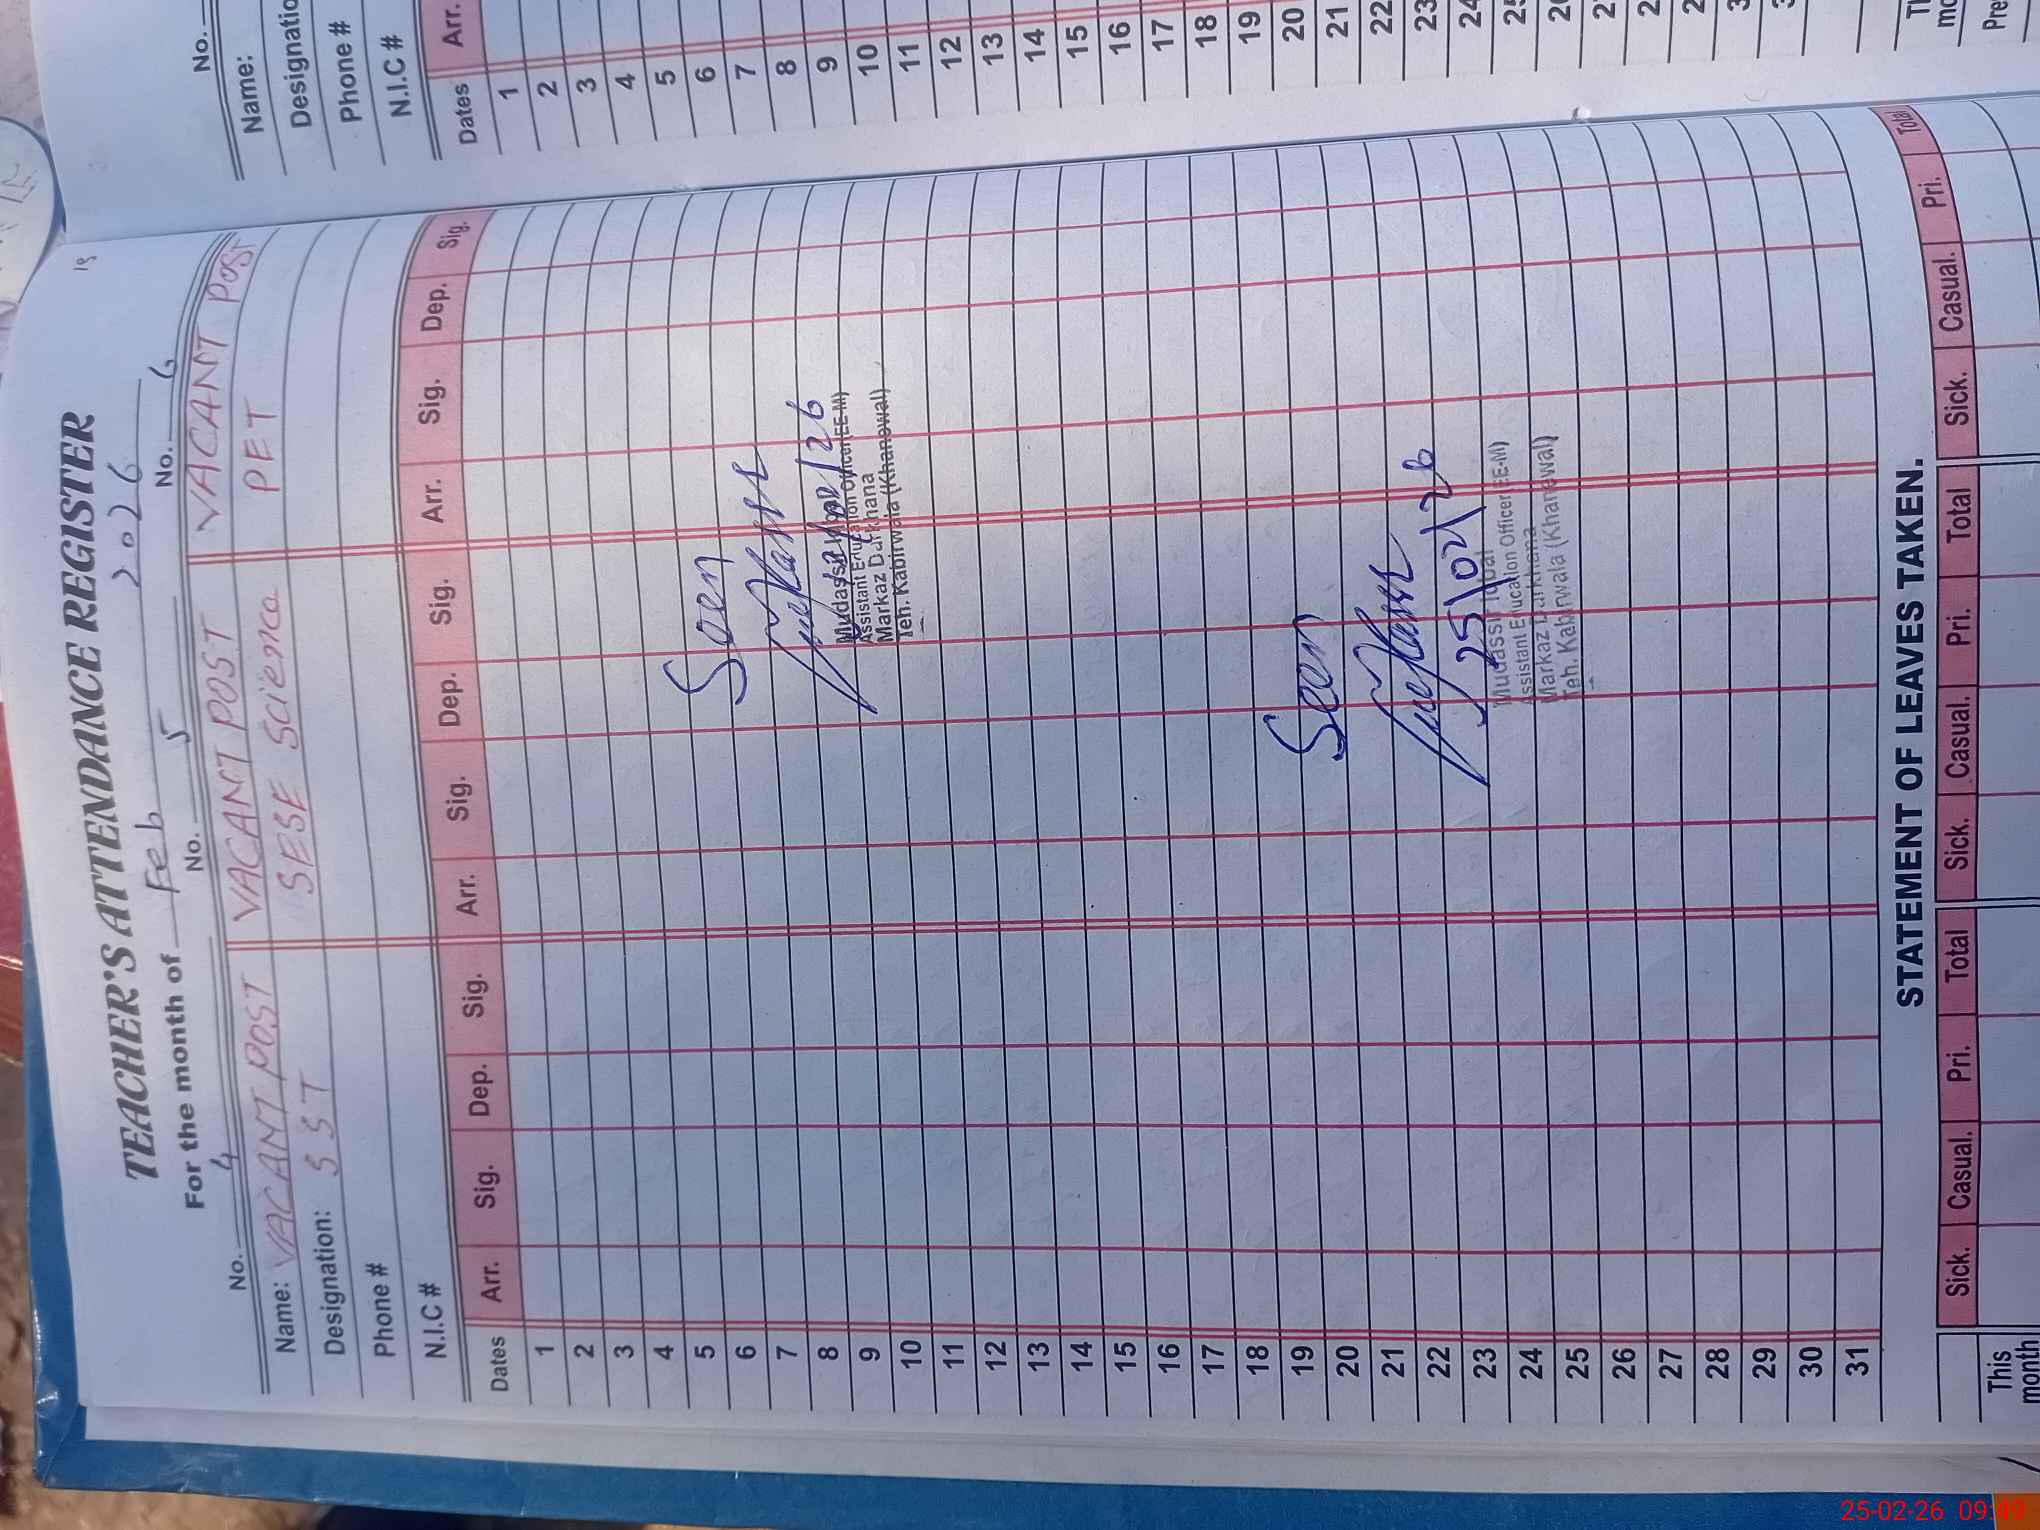 19
TEACHER'S ATTENDANCE REGISTER
For the month of Feb 2026
No. 4 No. 5 No. 6
Name: VACANT POST VACANT POST VACANT POST
Designation: SST SESE Science PET
Phone #
N.I.C #
Dates Arr. Sig. Dep. Sig. Arr. Sig. Dep. Sig. Arr. Sig. Dep. Sig.
1
2
3
4
5
6
7
8
9
10
11
12
13
14
15
16
17
18
19
20
21
22
23
24
25
26
27
28
29
30
31
Seen
Mudassir Iqbal
Assistant Education Officer (EE-M)
Markaz Darkhana
Teh. Kabirwala (Khanewal)
Seen
25/02/26
Mudassir Iqbal
Assistant Education Officer (EE-M)
Markaz Darkhana
Teh. Kabirwala (Khanewal)
STATEMENT OF LEAVES TAKEN.
Sick. Casual. Pri. Total Sick. Casual. Pri. Total Sick. Casual. Pri. Total
This
month
No.
Name:
Phone #
N.I.C #
Dates Arr.
1
2
3
4
5
6
7
8
9
10
11
12
13
14
15
16
17
18
19
20
21
22
23
25-02-26 09:49